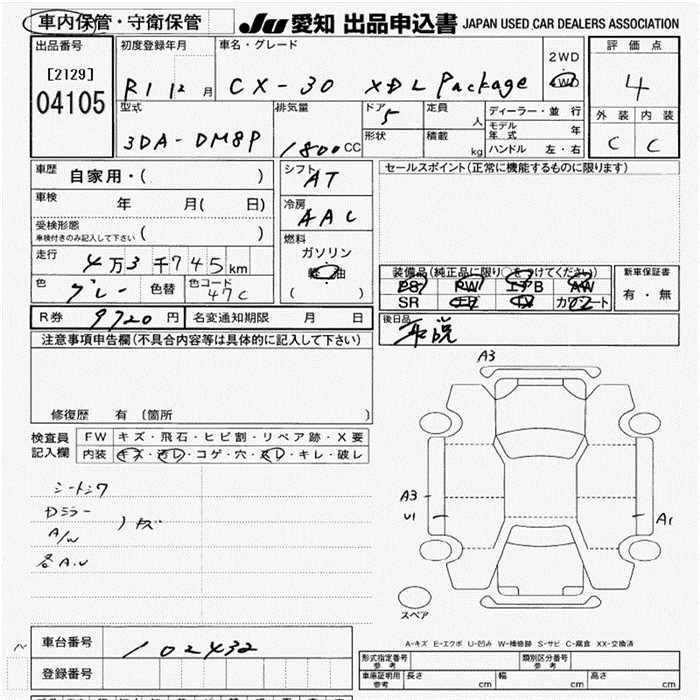 車内保管・守衛保管 JU 愛知 出品申込書 JAPAN USED CAR DEALERS ASSOCIATION
出品番号 初度登録年月 車名・グレード 2WD 評価点
[2129] R1 12 月 CX-30 XDL Package 4WD 4
04105 型式 排気量 ドア 5 定員 人 ディーラー・並行 外装 内装
3DA-DM8P 1800CC 形状 積載 kg モデル年式 年 C C
ハンドル 左・右
車歴 自家用・( ) シフト AT セールスポイント(正常に機能するものに限ります)
車検 年 月( 日) 冷房 AAC
受検形態 ( )
車検付きのみ記入して下さい
燃料
走行 4万3千745km ガソリン
軽油 装備品(純正品に限り○をつけてください) 新車保証書
色 グレー 色替 色コード 47C ( ) PS PW エアB AW 有・無
SR カワシート
R券 9720円 名変通知期限 月 日 後日品
取説
注意事項申告欄(不具合内容等は具体的に記入して下さい)
A3
修復歴 有 〔箇所 〕
検査員記入欄 FW キズ・飛石・ヒビ割・リペア跡・X要
内装 キズ・汚レ・コゲ・穴・スレ・キレ・破レ
A3
U1 A1
A/W キズ
スペア
A-キズ E-エクボ U-凹み W-補修跡 S-サビ C-腐食 XX-交換済
車台番号 102432
形式指定番号 参考 類別区分番号 参考
登録番号 車庫証明用 参考 長さ cm 幅 cm 高さ cm